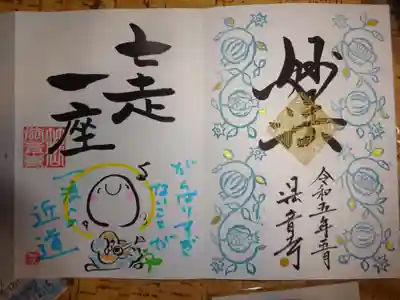 妙法
令和五年五月
法音寺
七走
一座
がんばりすぎ
ないことが
一番の
近道